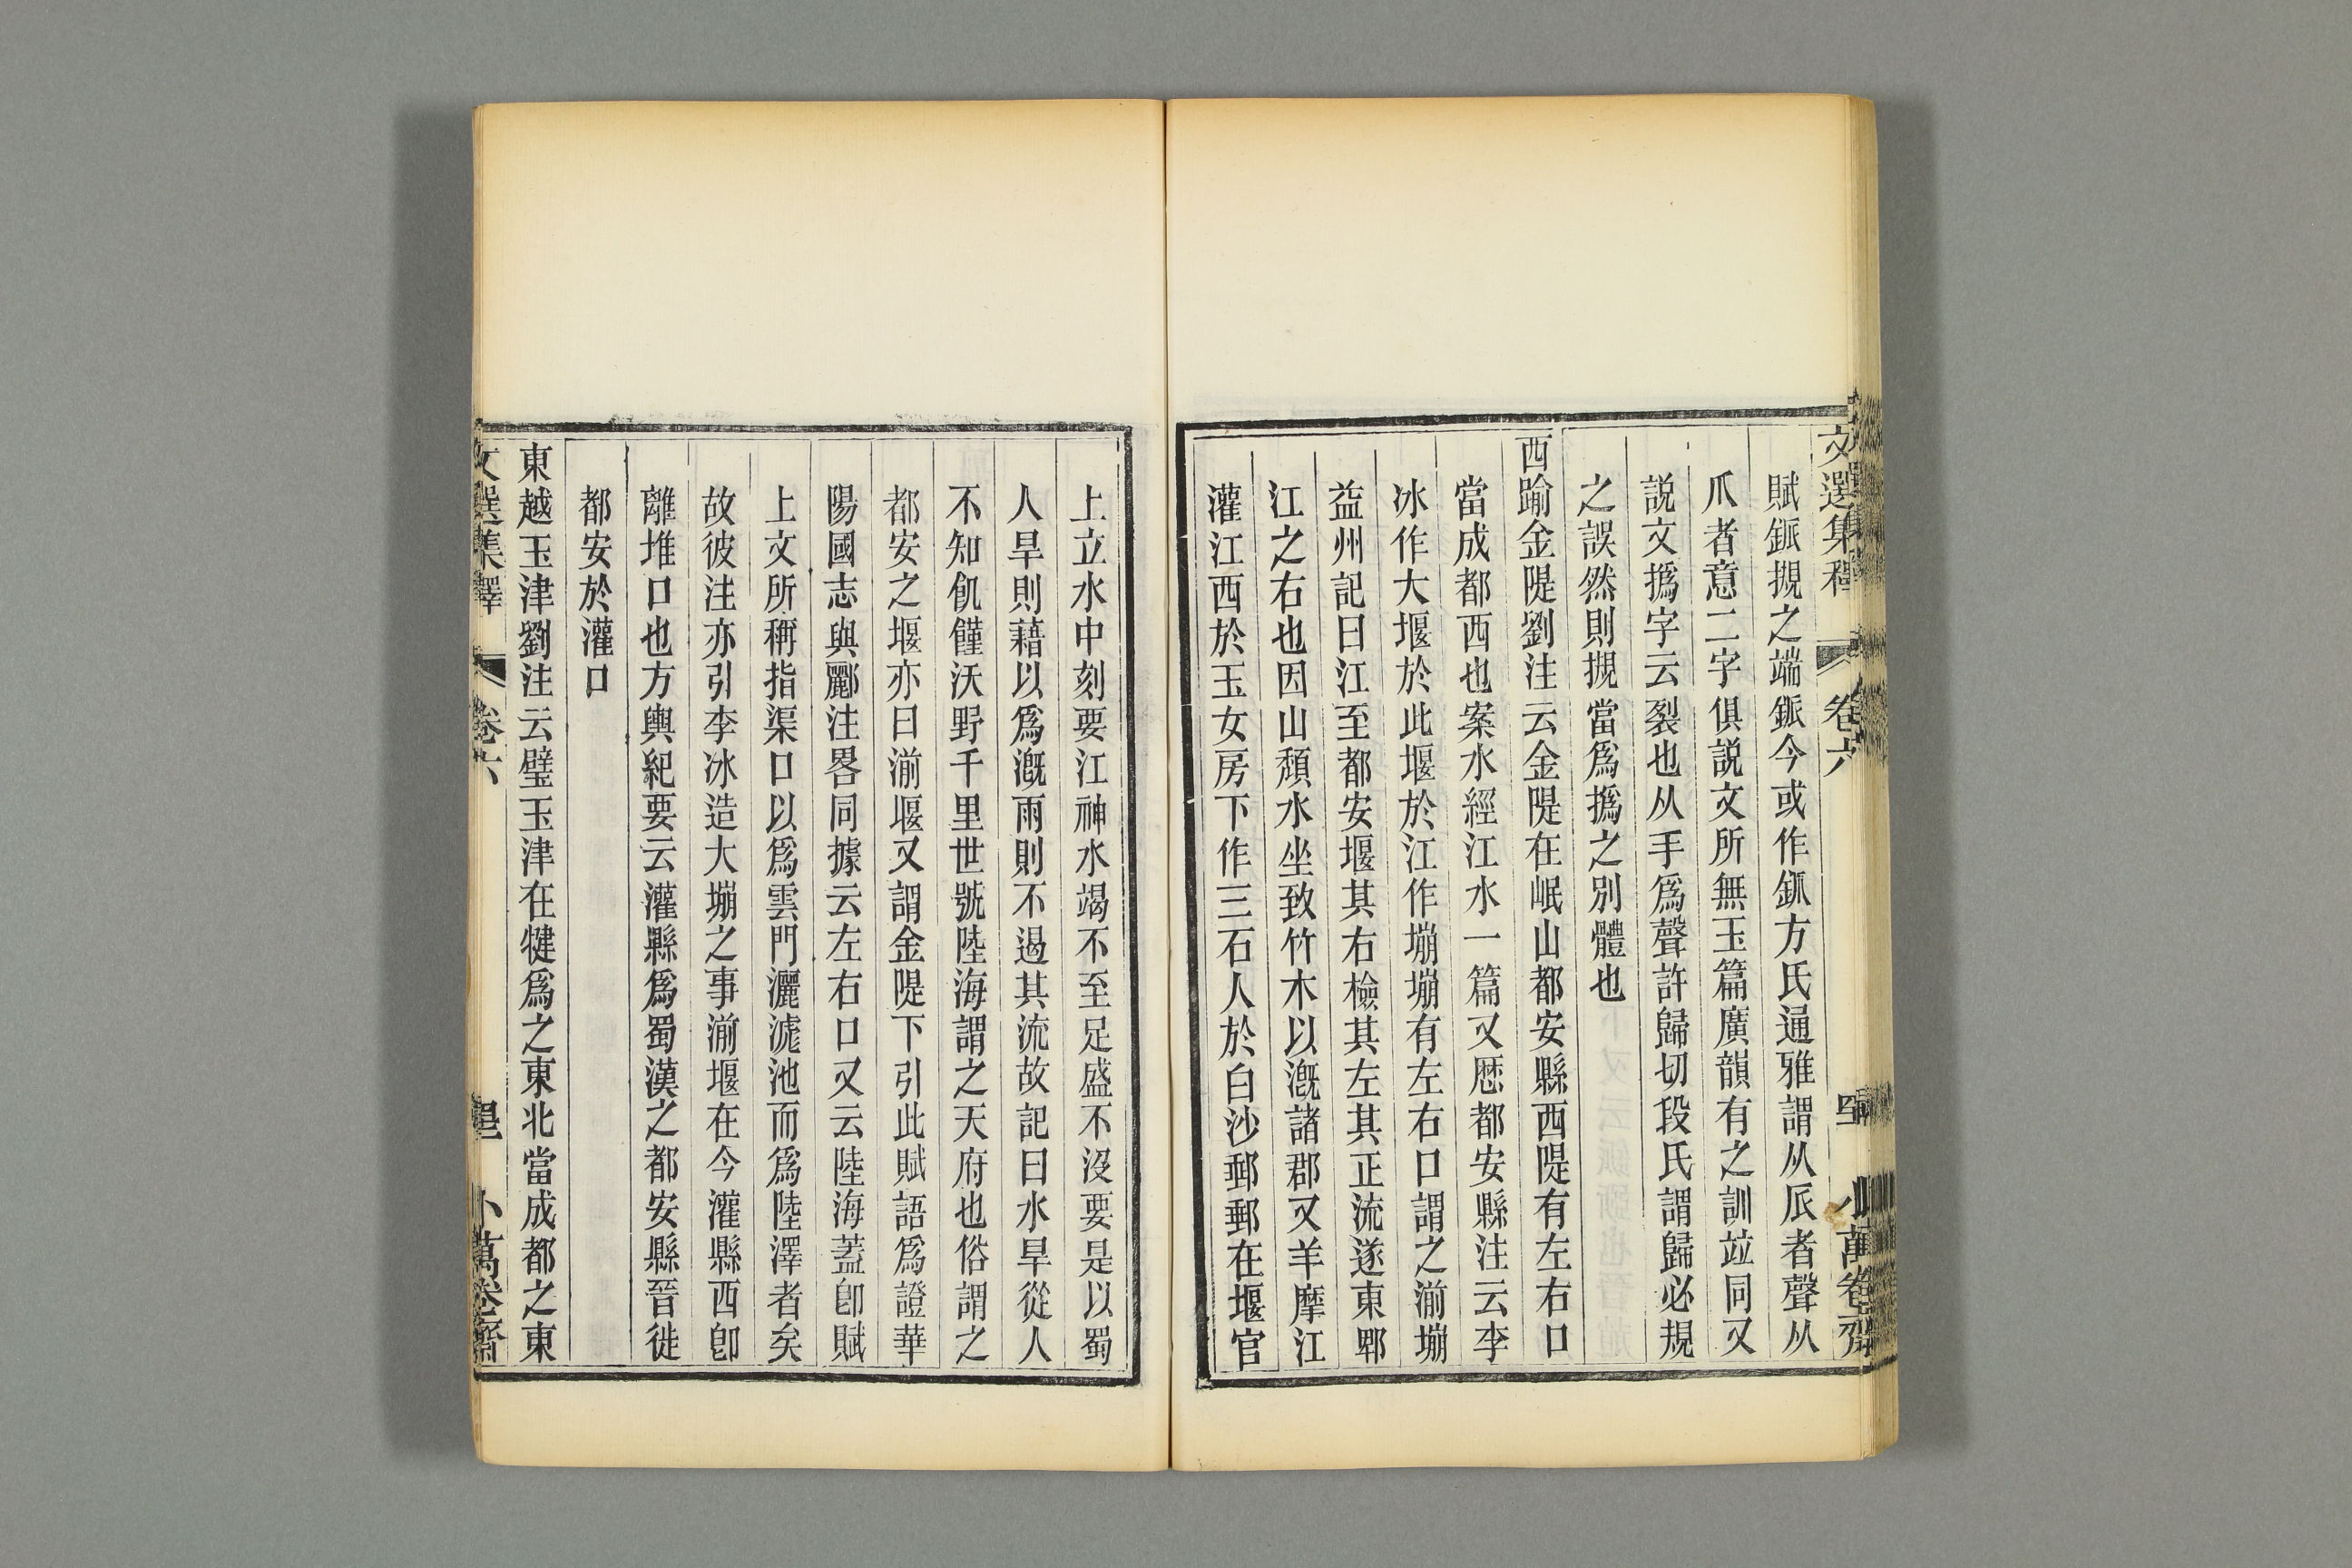 文選集釋 卷六 小萬卷齋
賦鈲摫之端鈲今或作鈲方氏通雅謂从𠂢者聲从
爪者意二字俱説文所無玉篇廣韻有之訓竝同又
説文撝字云裂也从手爲聲許歸切段氏謂歸必規
之誤然則摫當爲撝之別體也
西踰金隄劉注云金隄在岷山都安縣西隄有左右口
當成都西也案水經江水一篇又厯都安縣注云李
冰作大堰於此堰於江作堋堋有左右口謂之湔堋
益州記曰江至都安堰其右檢其左其正流遂東郫
江之右也因山頽水坐致竹木以漑諸郡又羊摩江
灌江西於玉女房下作三石人於白沙郵郵在堰官
上立水中刻要江神水竭不至足盛不沒要是以蜀
人旱則藉以爲漑雨則不遏其流故記曰水旱從人
不知飢饉沃野千里世號陸海謂之天府也俗謂之
都安之堰亦曰湔堰又謂金隄下引此賦語爲證華
陽國志與酈注畧同據云左右口又云陸海蓋卽賦
上文所稱指渠口以爲雲門灑滮池而爲陸澤者矣
故彼注亦引李冰造大堋之事湔堰在今灌縣西卽
離堆口也方輿紀要云灌縣爲蜀漢之都安縣晉徙
都安於灌口
東越玉津劉注云璧玉津在犍爲之東北當成都之東
文選集釋 卷六 小萬卷齋